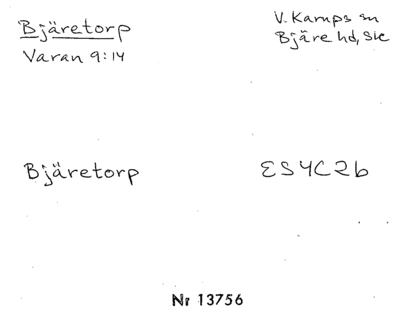 Bjäretorp
Varan 9:14
V. Karups sn
Bjäre hd, Ske
Bjäretorp
ES4C2b
Nr 13756